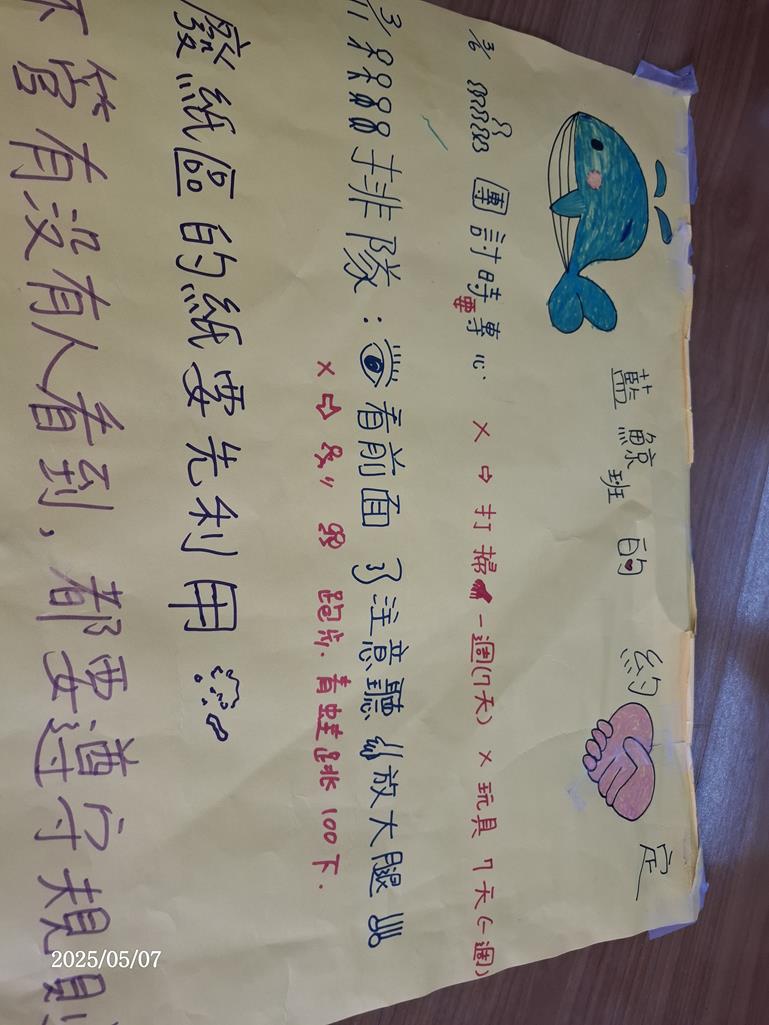 藍鯨班的約定
團討時要專心 × ⇨ 打掃 一週(7天) × 玩具 7天(一週)
排隊：看前面 注意聽 放大腿
× ⇨ 跑步. 青蛙跳 100下.
廢紙區的紙要先利用
不管有沒有人看到，都要遵守規則
2025/05/07